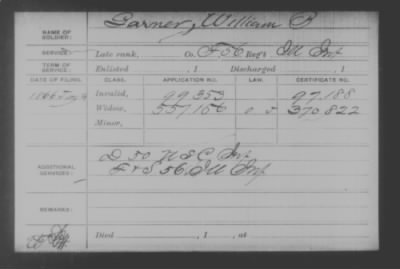 Garner, William P
NAME OF SOLDIER:
SERVICE: Late rank, Co. F 56 Reg't Ill Inf
TERM OF SERVICE: Enlisted , 1 Discharged , 1
DATE OF FILING. CLASS. APPLICATION NO. LAW. CERTIFICATE NO.
Invalid, 99.353 97.188
Widow, 557.156 370.822
Minor,
ADDITIONAL SERVICES: D 50 Inf
F & S 56, Ill Inf
REMARKS:
Died , 1 , at